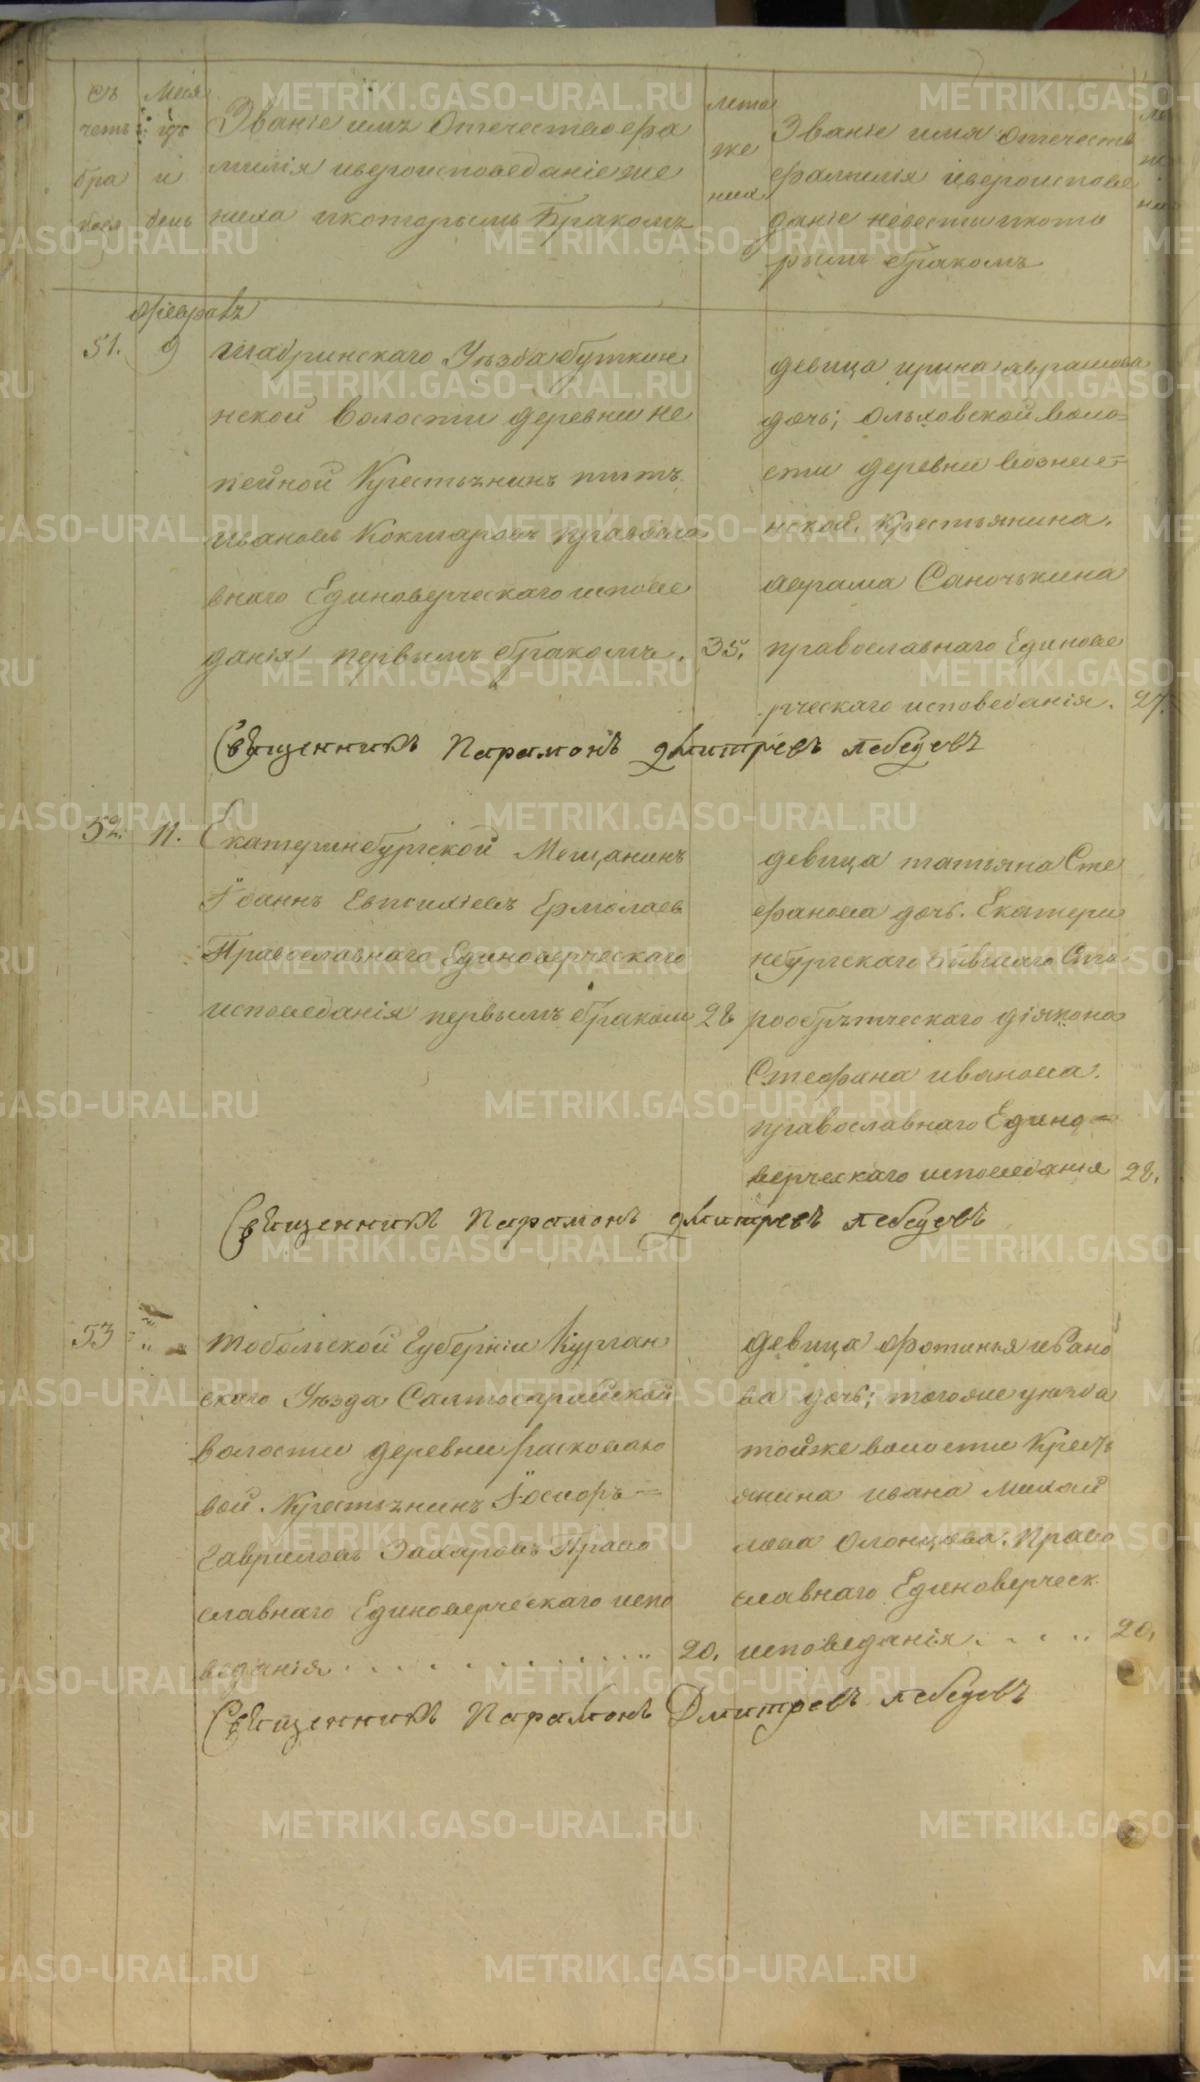 Съ
четъ
бра
ковъ
Меся
цъ
и
день
Званіе имъ Отечество фа
милія ивероисповеданіе же
ниха икоторымъ бракомъ
лета
же
ниха
Званіе имя отечеств
фамилія ивероиспове
даніе невесты икото
рымъ бракомъ
февраль
51.
9
шадринскаго Уезда буткин
нской волости деревни не
пейной Крестьянинъ титъ
ивановъ Кокшаровъ правосла
внаго Единоверческаго испове
данія первымъ бракомъ.
35.
девица ирина аврамова
дочь; Ольховской воло=
сти деревни вознесе=
нской. Крестьянина.
аврама Саночкина
православнаго Единове
рческаго исповеданія.
27.
Священникъ Парамонъ Дмитревъ лебедевъ
52.
11.
Екатеринбургской Мещанинъ
Іоаннъ Евпсихіевъ Ермолаевъ
Православнаго Единоверческаго
исповеданія первымъ браком
28
девица татьяна Сте
фанова дочь. Екатерин
небургскаго бывшаго Ста
рообрятческаго діякона
Стефана иванова.
православнаго Едино=
верческаго исповеданія
22.
Священникъ Парамонъ Дмитревъ лебедевъ
53
"
"
тобольской Губерніи Курган
скаго Уезда Салтосарайской
волости деревни
вой. Крестьянинъ Ѳеодоръ=
Гавриловъ Захаровъ Право
славнаго Единоверческаго испо
веданія . . . . . . . . . . . . . .
20.
девица фотинья ивано
ва дочь; тогоже уезда
тойже волости Кресть
янина ивана михай
лова Олонцова. Право
славнаго Единоверческ.
исповеданія . . . . .
20.
Священникъ Парамонъ Дмитревъ лебедевъ
METRIKI.GASO-URAL.RU